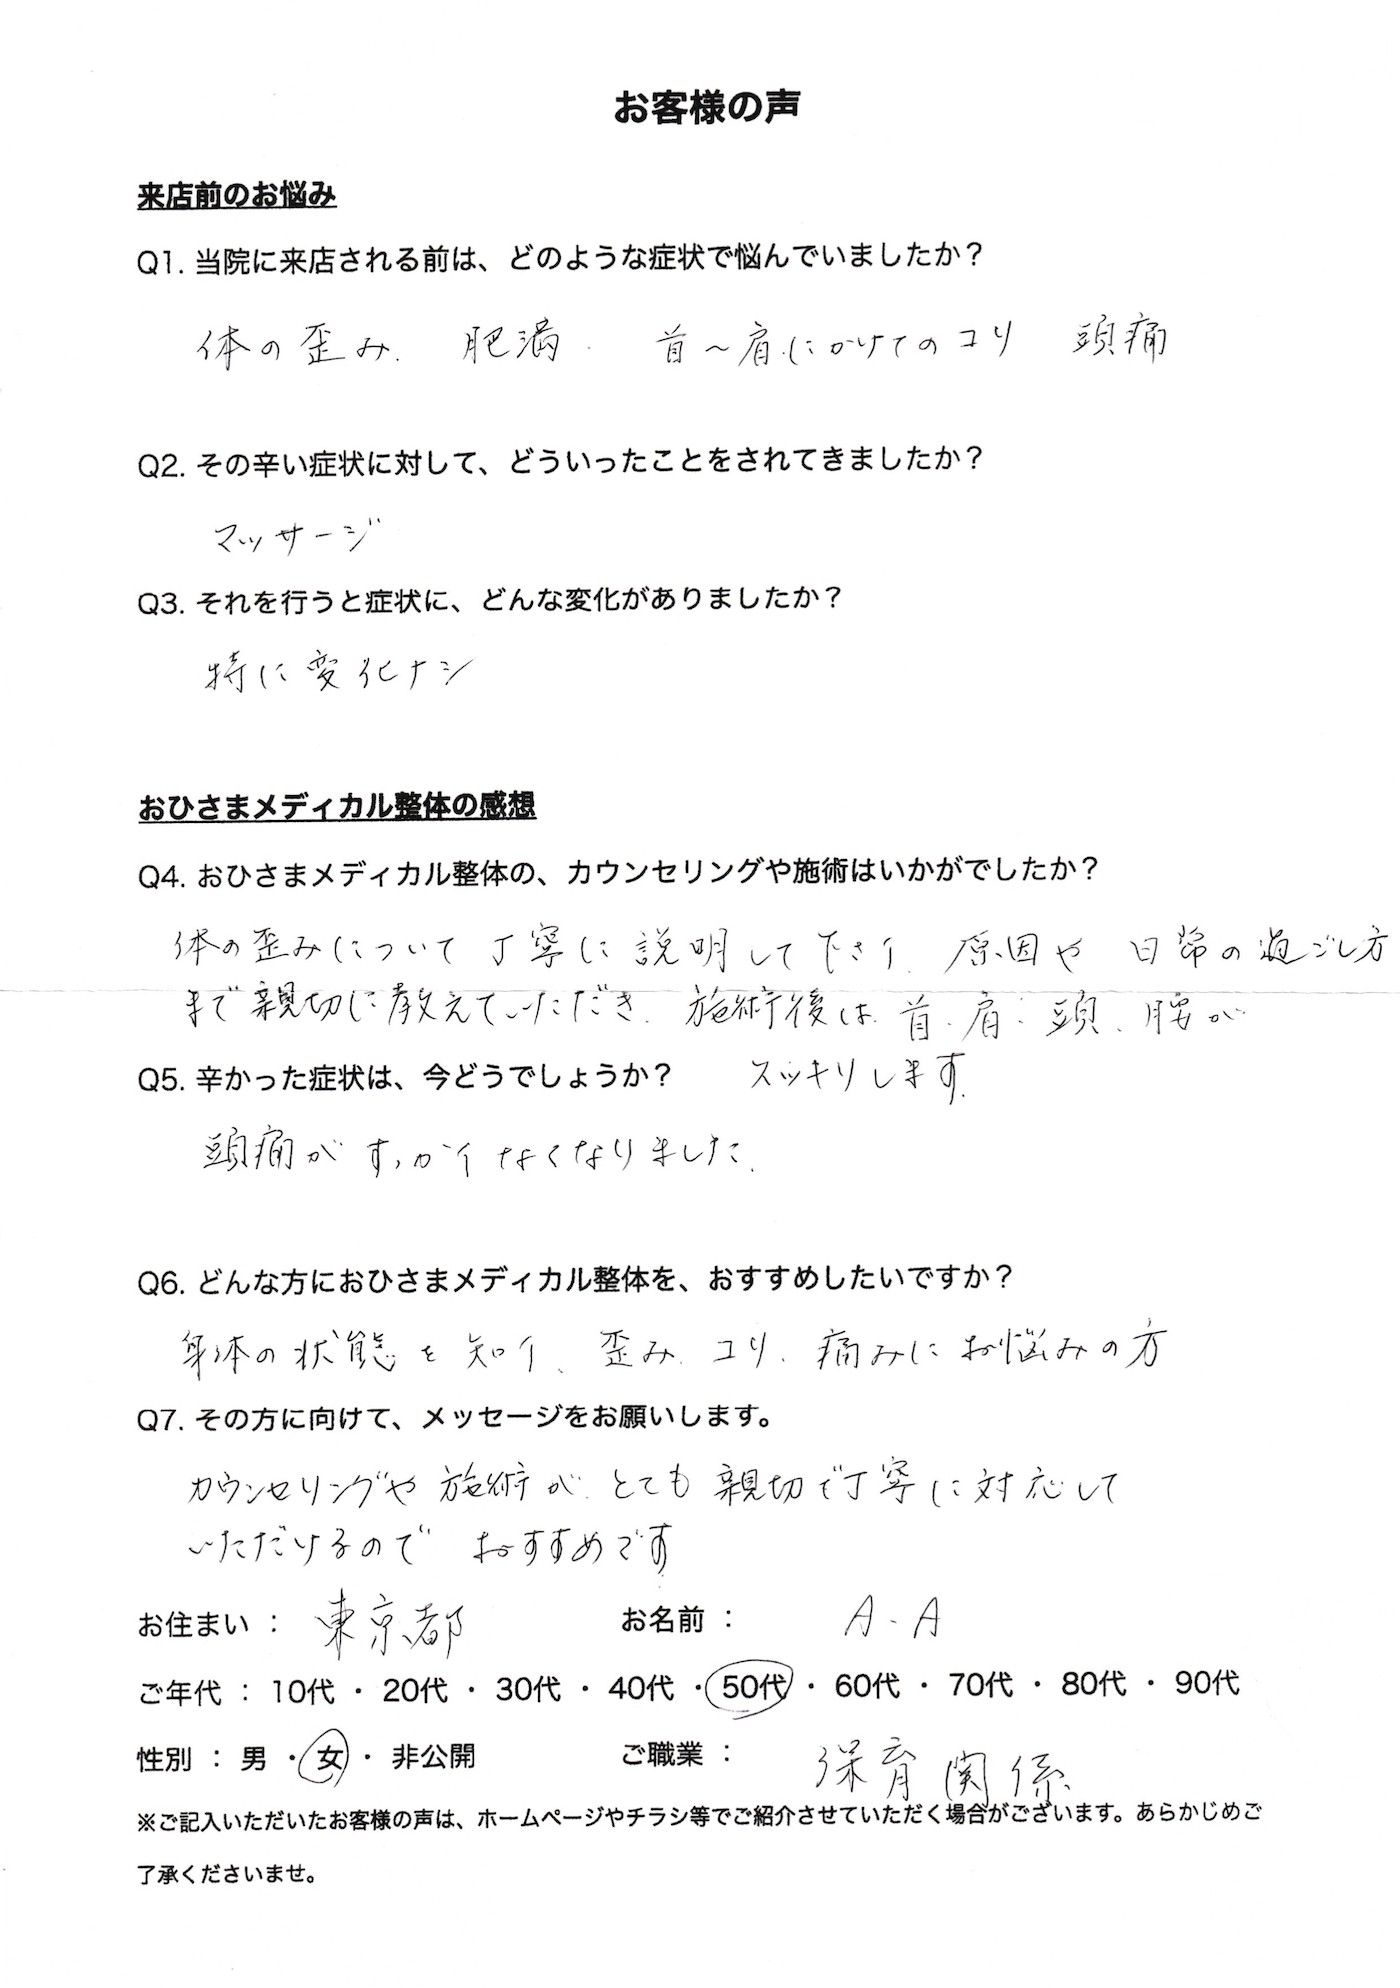 お客様の声
来店前のお悩み
Q1. 当院に来店される前は、どのような症状で悩んでいましたか？
体の歪み. 肥満. 首～肩にかけてのコリ 頭痛
Q2. その辛い症状に対して、どういったことをされてきましたか？
マッサージ
Q3. それを行うと症状に、どんな変化がありましたか？
特に変化ナシ
おひさまメディカル整体の感想
Q4. おひさまメディカル整体の、カウンセリングや施術はいかがでしたか？
体の歪みについて丁寧に説明して下さり. 原因や 日常の過ごし方
まで親切に教えていただき. 施術後は 首、肩、頭、腰が
Q5. 辛かった症状は、今どうでしょうか？ スッキリします.
頭痛がすっかりなくなりました.
Q6. どんな方におひさまメディカル整体を、おすすめしたいですか？
身体の状態を知り、歪み、コリ、痛みにお悩みの方
Q7. その方に向けて、メッセージをお願いします。
カウンセリングや施術がとても親切で丁寧に対応して
いただけるので おすすめです
お住まい ： 東京都 お名前 ： A.A
ご年代 ： 10代 ・ 20代 ・ 30代 ・ 40代 ・ 50代 ・ 60代 ・ 70代 ・ 80代 ・ 90代
性別 ： 男 ・ 女 ・ 非公開 ご職業 ： 保育関係
※ご記入いただいたお客様の声は、ホームページやチラシ等でご紹介させていただく場合がございます。あらかじめご
了承くださいませ。